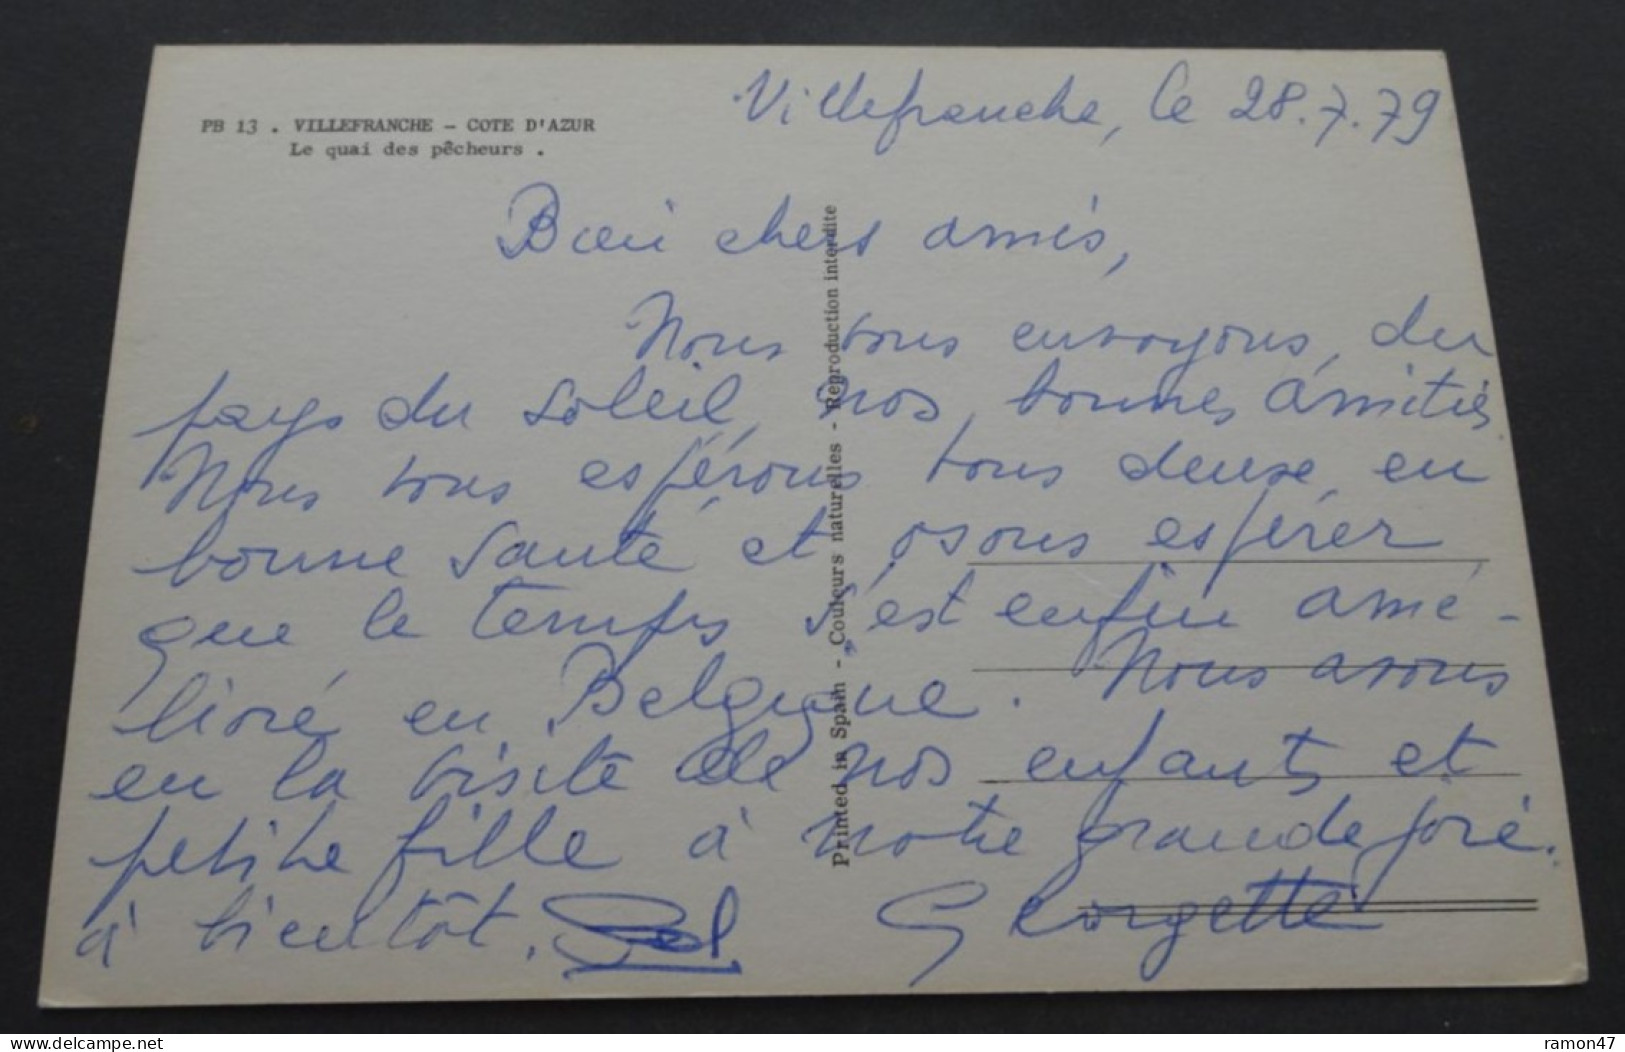 PB 13 . VILLEFRANCHE - COTE D'AZUR
Le quai des pêcheurs .
Villefranche, le 28.7.79
Bien chers amis,
Nous vous envoyons, du
pays du soleil, nos bonnes amitiés.
Nous vous espérons tous deux en
bonne santé et osons espérer
que le temps s'est enfin amé-
lioré en Belgique. Nous avons
eu la visite de nos enfants et
petite fille à notre grande joie.
à bientôt.
Georgette
Printed in Spain - Couleurs naturelles - Reproduction interdite
delcampe.net
ramon47